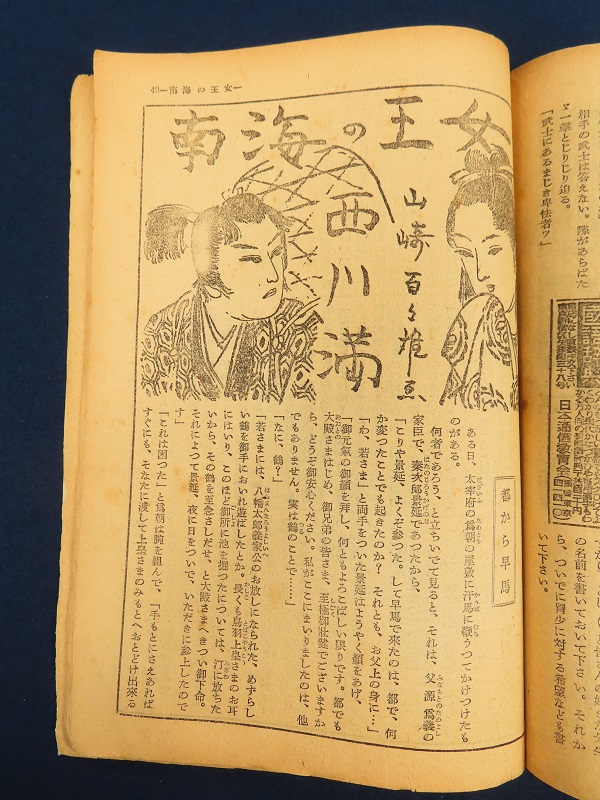 40—南海の王女—
南海の王女
西川満
山崎百々雄画
都から早馬
ある日、太宰府の為朝の屋敷に汗馬に鞭うつてかけつけたも
のがある。
何者であろう、と立ちいでて見ると、それは、父源為義の
家臣で、秦次郎景延であつたから、
「こりや景延、よくぞ参つた。して早馬で来たのは、都で、何
か変つたことでも起きたのか? それとも、お父上の身に…」
「わ、若さま」と両手をついた景延はようやく顔をあげ、
「御元気の御顔を拝し、何ともよろこばしい限りです。都でも
大殿さまはじめ、御兄弟の皆さま、至極御壮健でございますか
ら、どうぞ御安心ください。私がここにまいりましたのは、他
でもありません。実は鶴のことで……」
「なに、鶴?」
「若さまには、八幡太郎義家公のお放しになられた、めずらし
い鶴を御手においれ遊ばしたとか。長くも鳥羽上皇さまのお耳
にはいり、このほど御所に池を掘つたについては、汀に放ちた
いから、その鶴を至急さしだせ、と大殿さまへきつい御下命。
それによつて景延、夜に日をついで、いただきに参上したので
す」
「これは困つた」と為朝は腕を組んで、「手もとにさえあれば
すぐにも、そなたに渡して上皇さまのみもとへおとどけ出来る
相手の武士は答えない。隙があらばた
ゞ一撃とじりじり迫る。
「武士にあるまじき卑怯者ッ」
日本通信教育会
の名前を書いておいて下さい。それか
ら、ついでに胃少に対する希望なども書
いて下さい。